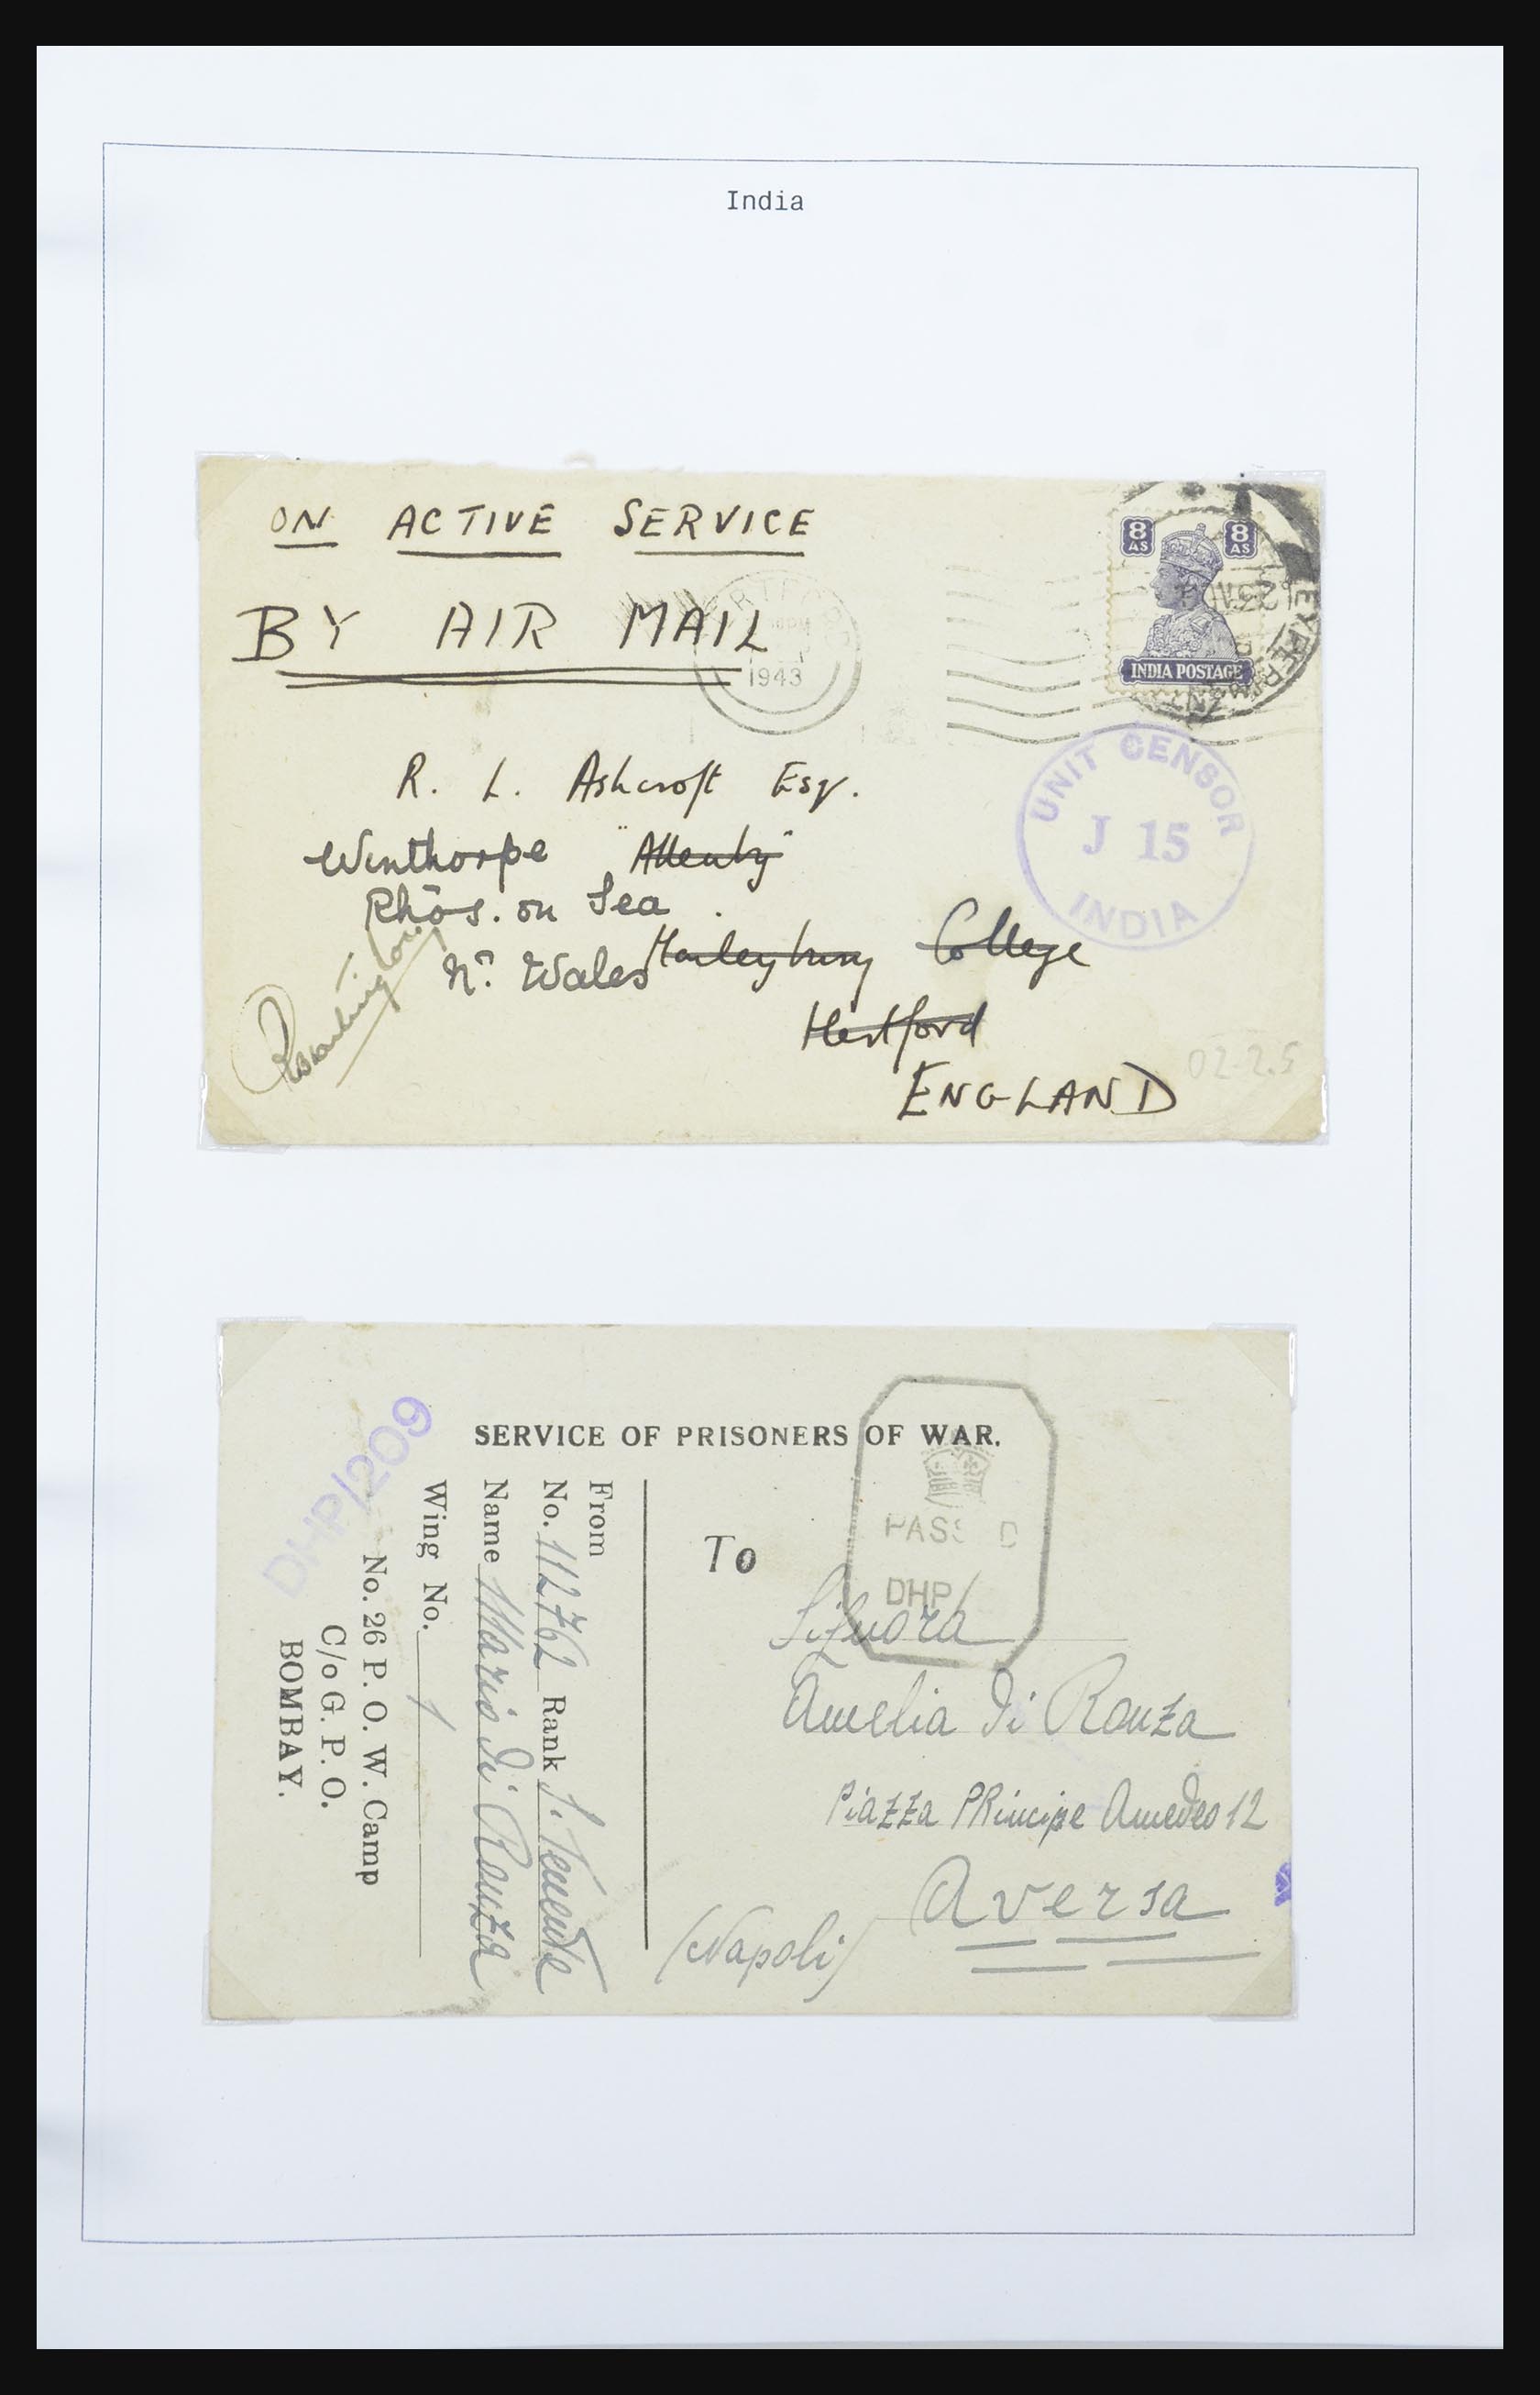 India
ON ACTIVE SERVICE
BY AIR MAIL
1943
8 AS 8 AS
INDIA POSTAGE
UNIT CENSOR
J 15
INDIA
R. L. Ashcroft Esqr.
Winthorpe "Allenby"
Rhos. on Sea.
Nr. Wales Haileybury College
Hertford
ENGLAND
02-2.5
SERVICE OF PRISONERS OF WAR.
PASS D
DHP/
To
Signora
Amelia Di Ronza
Piazza PRincipe Amedeo 12
Aversa
(Napoli)
From
No. 112762 Rank S. Tenente
Name Mario Di Ronza
Wing No. 1
No. 26 P. O. W. Camp
C/o G. P. O.
BOMBAY.
DHP/209